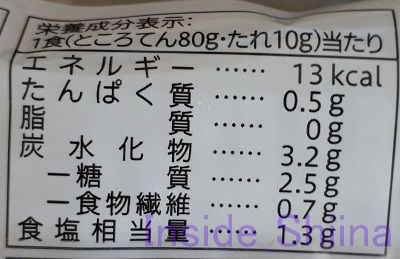 栄養成分表示:
1食(ところてん80g・たれ10g)当たり
エネルギー …… 13 kcal
たんぱく質 …… 0.5 g
脂質 …… 0 g
炭水化物 …… 3.2 g
―糖質 …… 2.5 g
―食物繊維 …… 0.7 g
食塩相当量 …… 1.3 g
Inside Shiina